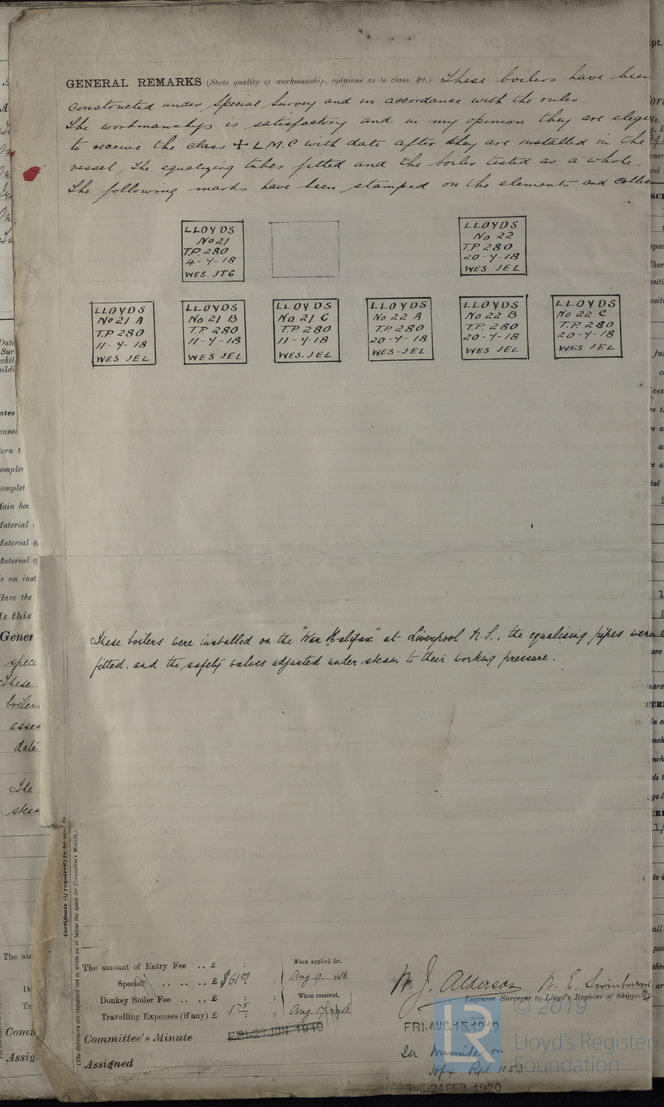 GENERAL REMARKS (State quality of workmanship, opinions as to class, &c.) These boilers have been
constructed under Special Survey and in accordance with the rules.
The workmanship is satisfactory and in my opinion they are
to receive the class + L.M.C with date after they are installed in the
vessel, the equalizing tubes fitted and the boiler tested as a whole.
The following marks have been stamped on the elements and
LLOYDS
No 21
T.P. 280
4-4-18
WES. JTG
LLOYDS
No 22
T.P. 280
20-4-18
WES JEL
LLOYDS
No 21 A
T.P. 280
11-4-18
WES JEL
LLOYDS
No 21 B
T.P. 280
11-4-18
WES JEL
LLOYDS
No 21 C
T.P. 280
11-4-18
WES. JEL
LLOYDS
No 22 A
T.P. 280
20-4-18
WES-JEL
LLOYDS
No 22 B
T.P. 280
20-4-18
WES JEL
LLOYDS
No 22 C
T.P. 280
20-4-18
WES JEL
These boilers were installed on the "War Halifax" at Liverpool N.S., the equalising pipes were
fitted, and the safety valves adjusted under steam to their working pressure.
Certificate (if required) to be sent to
The amount of Entry Fee .. £
Special .. £
Donkey Boiler Fee .. £
Travelling Expenses (if any) £
When applied for,
Aug 9
When received,
Aug 17
W. J. Alderson
Engineer Surveyor to Lloyd's Register of Shipping
Committee's Minute
FRI. 27 JUN. 1919
FRI. AUG. 15. 1919
Assigned
TUE. 24 FEB. 1920
LR
© 2019
Lloyd's Register
Foundation